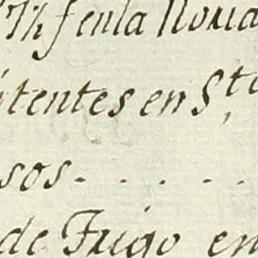 en la Novia
itentes en S.to
sos - . . . .
de Frigo en